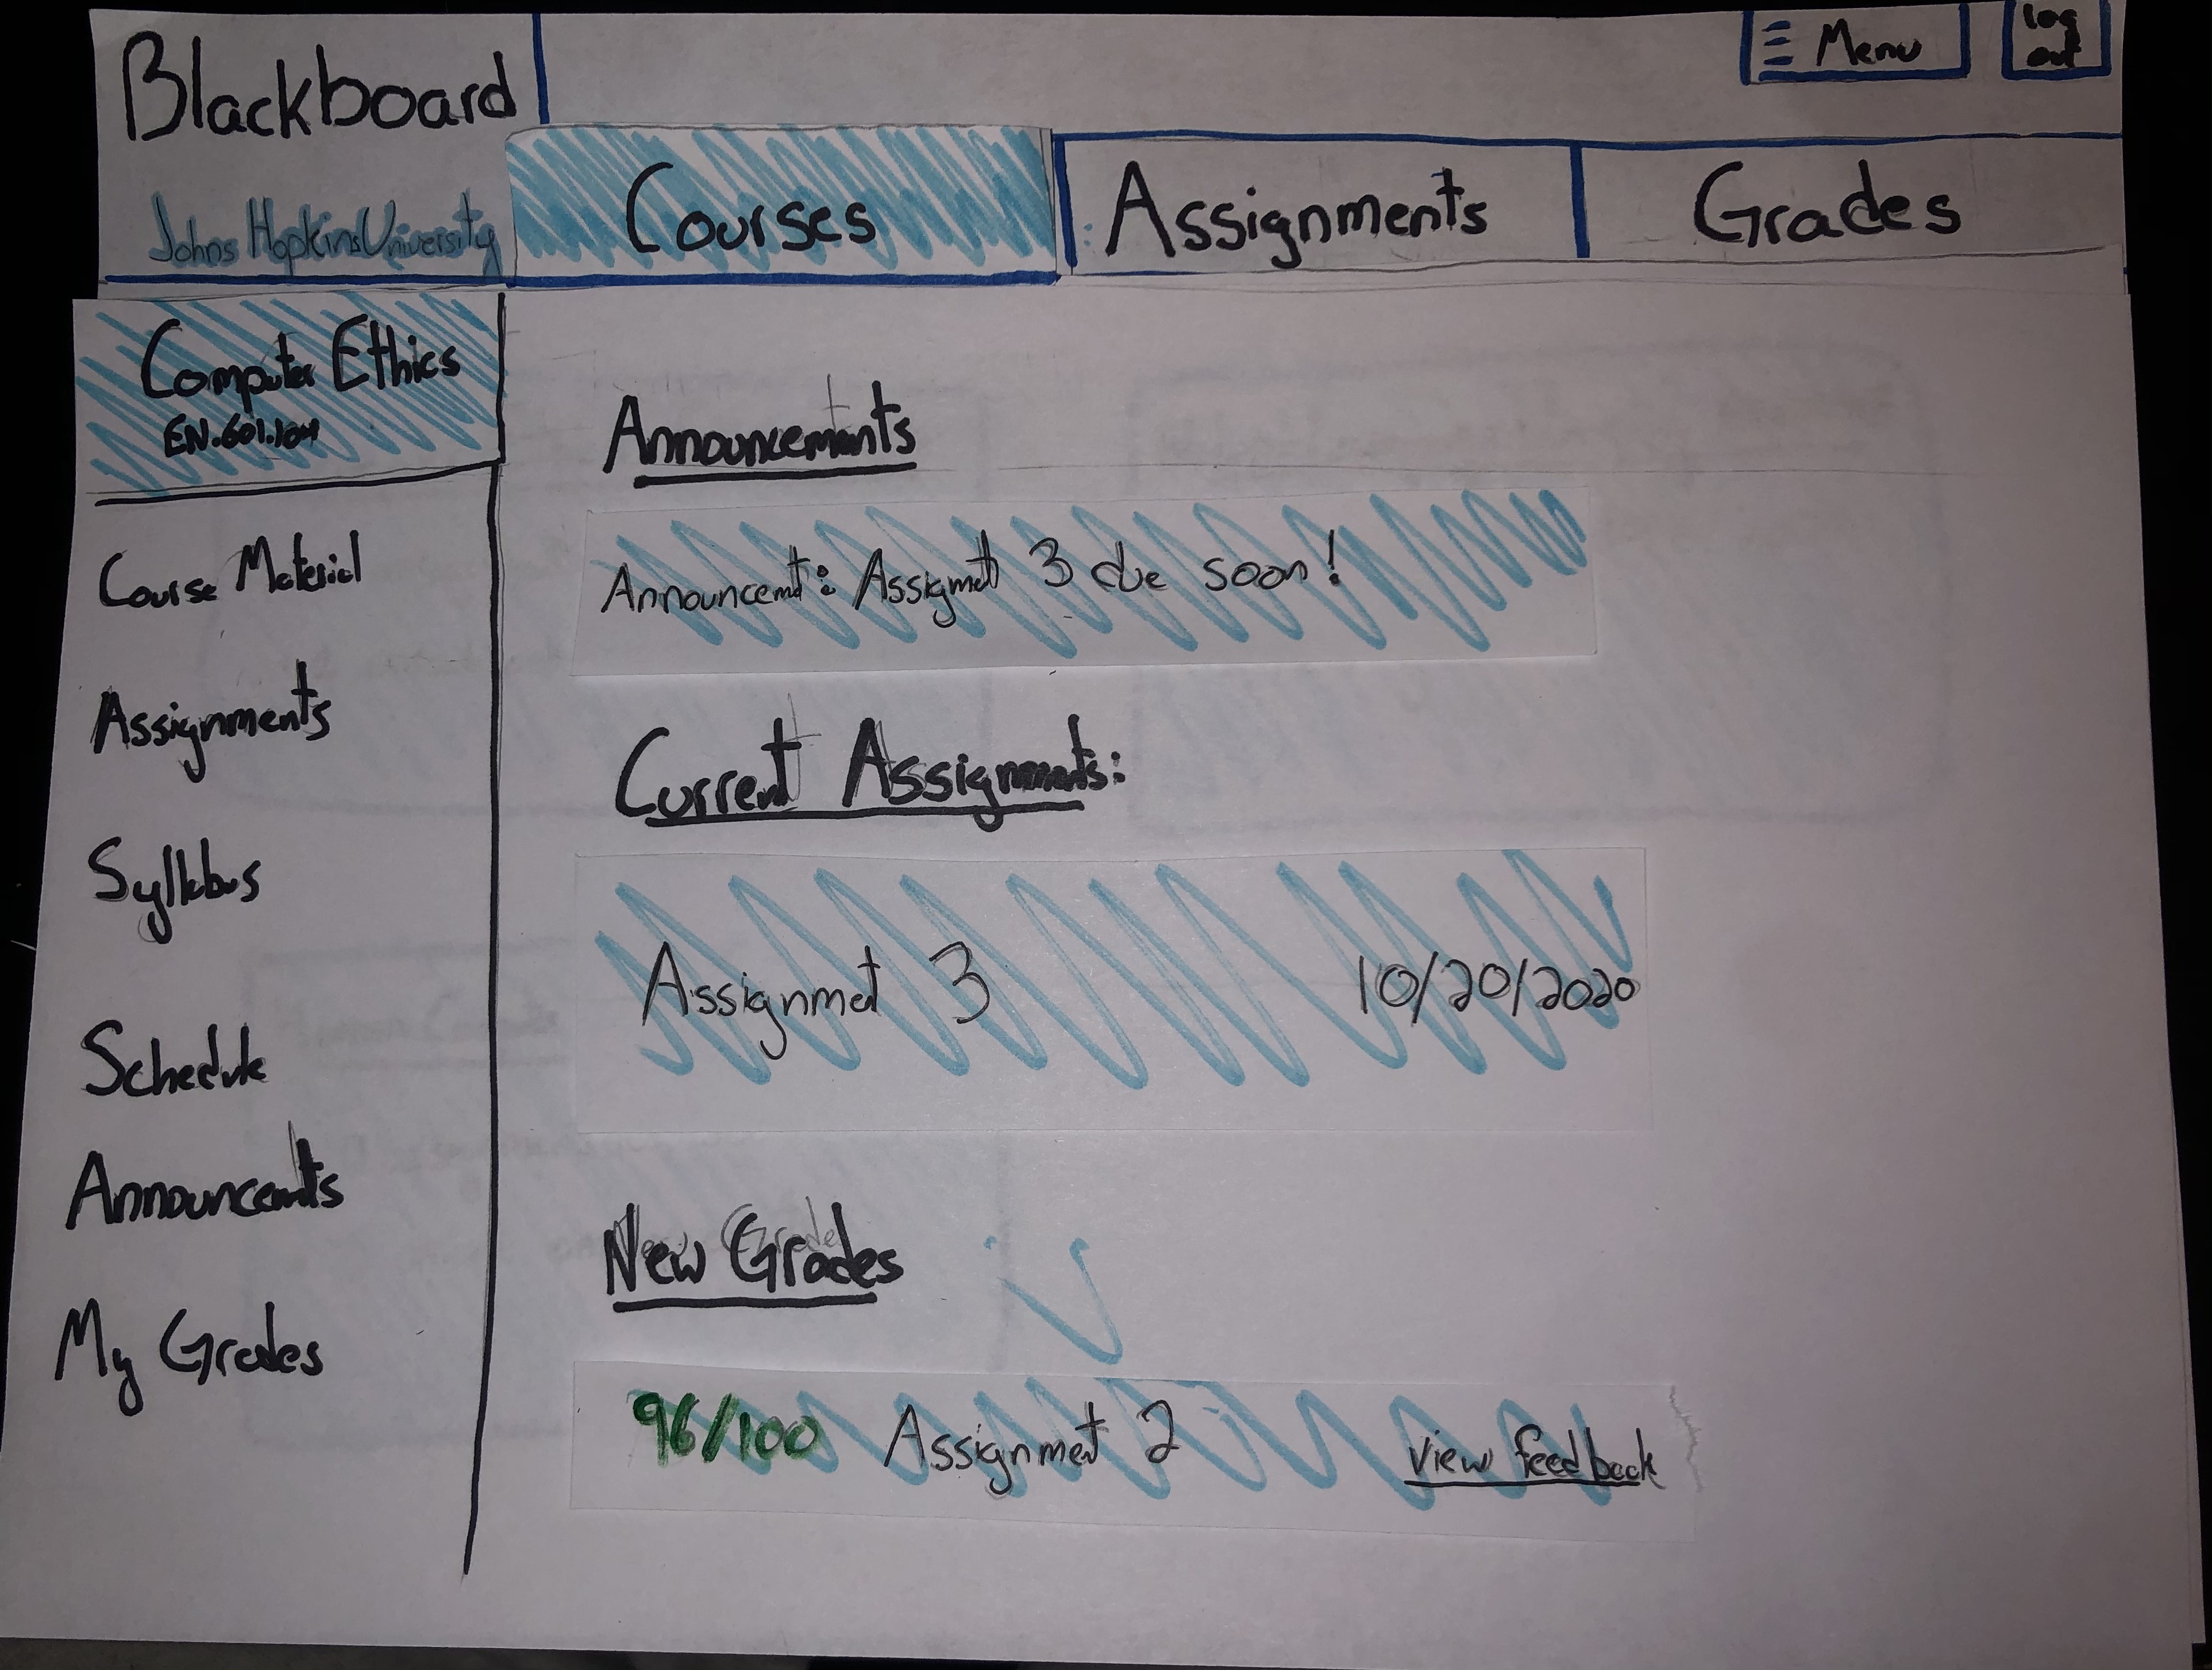 Blackboard
Johns Hopkins University
Menu
log
out
Courses
Assignments
Grades
Computer Ethics
EN.601.104
Course Material
Assignments
Syllabus
Schedule
Announcements
My Grades
Announcements
Announcemt: Assigmet 3 due soon!
Current Assignments:
Assignmet 3 10/20/2020
New Grades
96/100 Assignmet 2 view feedback